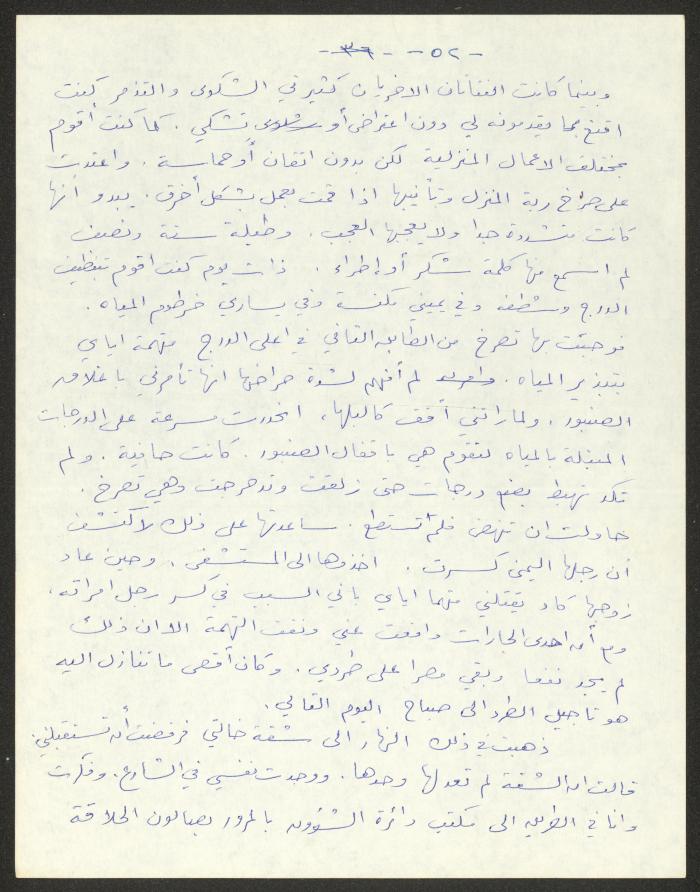 - ٥٢ - - ٣٦ -
وبينما كانت الفتاتان الاخريان كثيرتي الشكوى والتذمر كنت
اقنع بما يقدمونه لي دون اعتراض أو شكوى تشكي . كما كنت أقوم
بمختلف الاعمال المنزلية لكن بدون اتقان أو حماسة . واعتدت
على صراخ ربة المنزل وتأنيبها اذا قمت بعمل بشكل أخرق . يبدو أنها
كانت متشددة جدا ولا يعجبها العجب . وطيلة سنة ونصف
لم اسمع منها كلمة شكر أو إطراء . ذات يوم كنت اقوم بتنظيف
الدرج وشطفه وفي يميني مكنسة وفي يساري خرطوم المياه .
فوجئت بها تصرخ من الطابق الثاني في اعلى الدرج متهمة اياي
بتبذير المياه . لم أفهم لشدة صراخها انها تأمرني باغلاق
الصنبور . ولما رأتني أقف كالبلها، انحدرت مسرعة على الدرجات
المبتلة بالمياه لتقوم هي باقفال الصنبور . كانت حافية . ولم
تكد تهبط بضع درجات حتى زلقت وتدحرجت وهي تصرخ .
حاولت ان تنهض فلم تستطع . ساعدتها على ذلك لأكتشف
أن رجلها اليمنى كسرت . اخذوها الى المستشفى . وحين عاد
زوجها كاد يقتلني متهما اياي باني السبب في كسر رجل امرأته .
ومع أن احدى الجارات دافعت عني ونفت التهمة الا ان ذلك
لم يجد نفعا وبقي مصرا على طردي . وكان أقصى ما تنازل اليه
هو تأجيل الطرد الى صباح اليوم التالي .
ذهبت في ذلك النهار الى شقة خالتي فرفضت أن تستقبلني .
قالت ان الشقة لم تعد لها وحدها . ووجدت نفسي في الشارع . وفكرت
وانا في الطريق الى مكتب دائرة الشؤون بالمرور بصالون الحلاقة